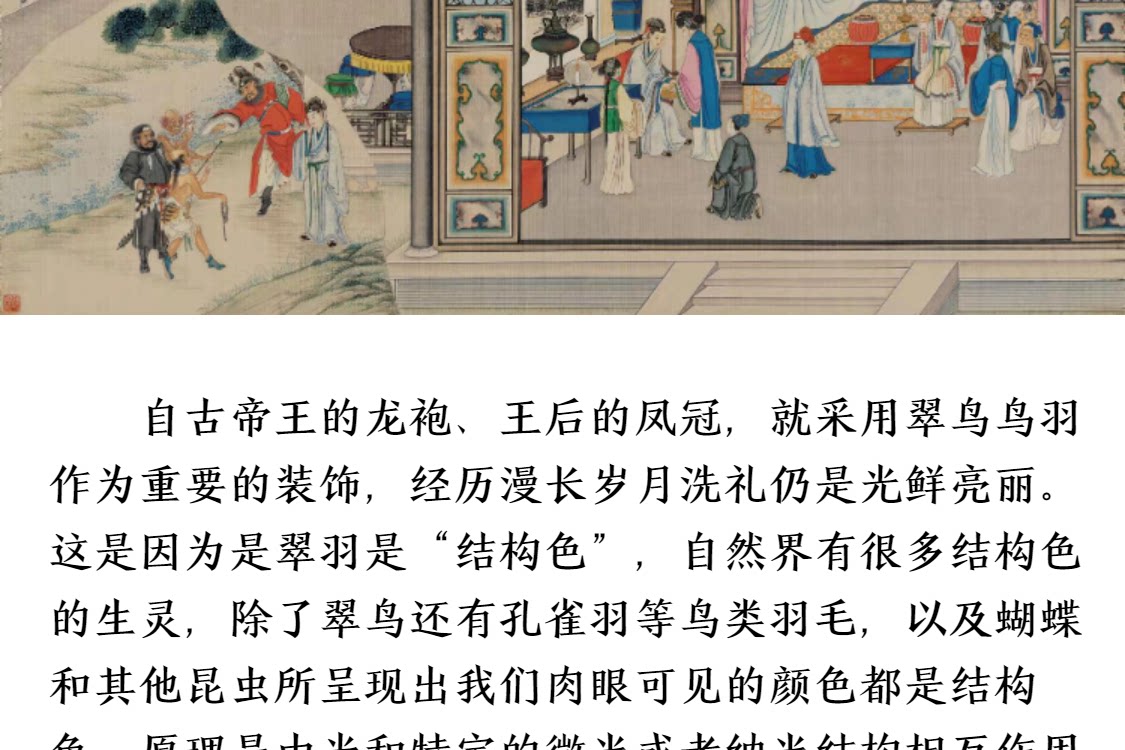 自古帝王的龙袍、王后的凤冠，就采用翠鸟鸟羽
作为重要的装饰，经历漫长岁月洗礼仍是光鲜亮丽。
这是因为是翠羽是“结构色”，自然界有很多结构色
的生灵，除了翠鸟还有孔雀羽等鸟类羽毛，以及蝴蝶
和其他昆虫所呈现出我们肉眼可见的颜色都是结构
色，原理是由光和特定的微米或者纳米结构相互作用